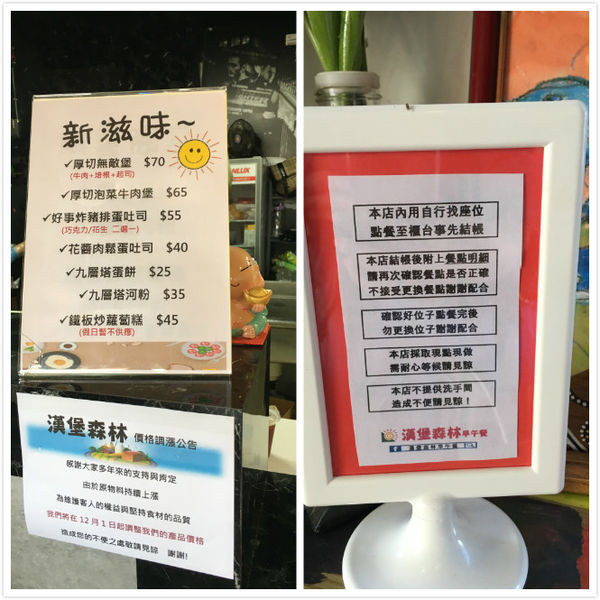 新滋味~
✓厚切無敵堡 $70
(牛肉+培根+起司)
✓厚切泡菜牛肉堡 $65
✓好事炸豬排蛋吐司 $55
(巧克力/花生 二選一)
✓花醬肉鬆蛋吐司 $40
✓九層塔蛋餅 $25
✓九層塔河粉 $35
✓鐵板炒蘿蔔糕 $45
(假日暫不供應)
漢堡森林 價格調漲公告
感謝大家多年來的支持與肯定
由於原物料持續上漲
為維護客人的權益與堅持食材的品質
我們將在12月1日起調整我們的產品價格
造成您的不便之處敬請見諒 謝謝!
本店內用自行找座位
點餐至櫃台事先結帳
本店結帳後附上餐點明細
請再次確認餐點是否正確
不接受更換餐點謝謝配合
確認好位子點餐完後
勿更換位子謝謝配合
本店採取現點現做
需耐心等候請見諒
本店不提供洗手間
造成不便請見諒！
漢堡森林早午餐